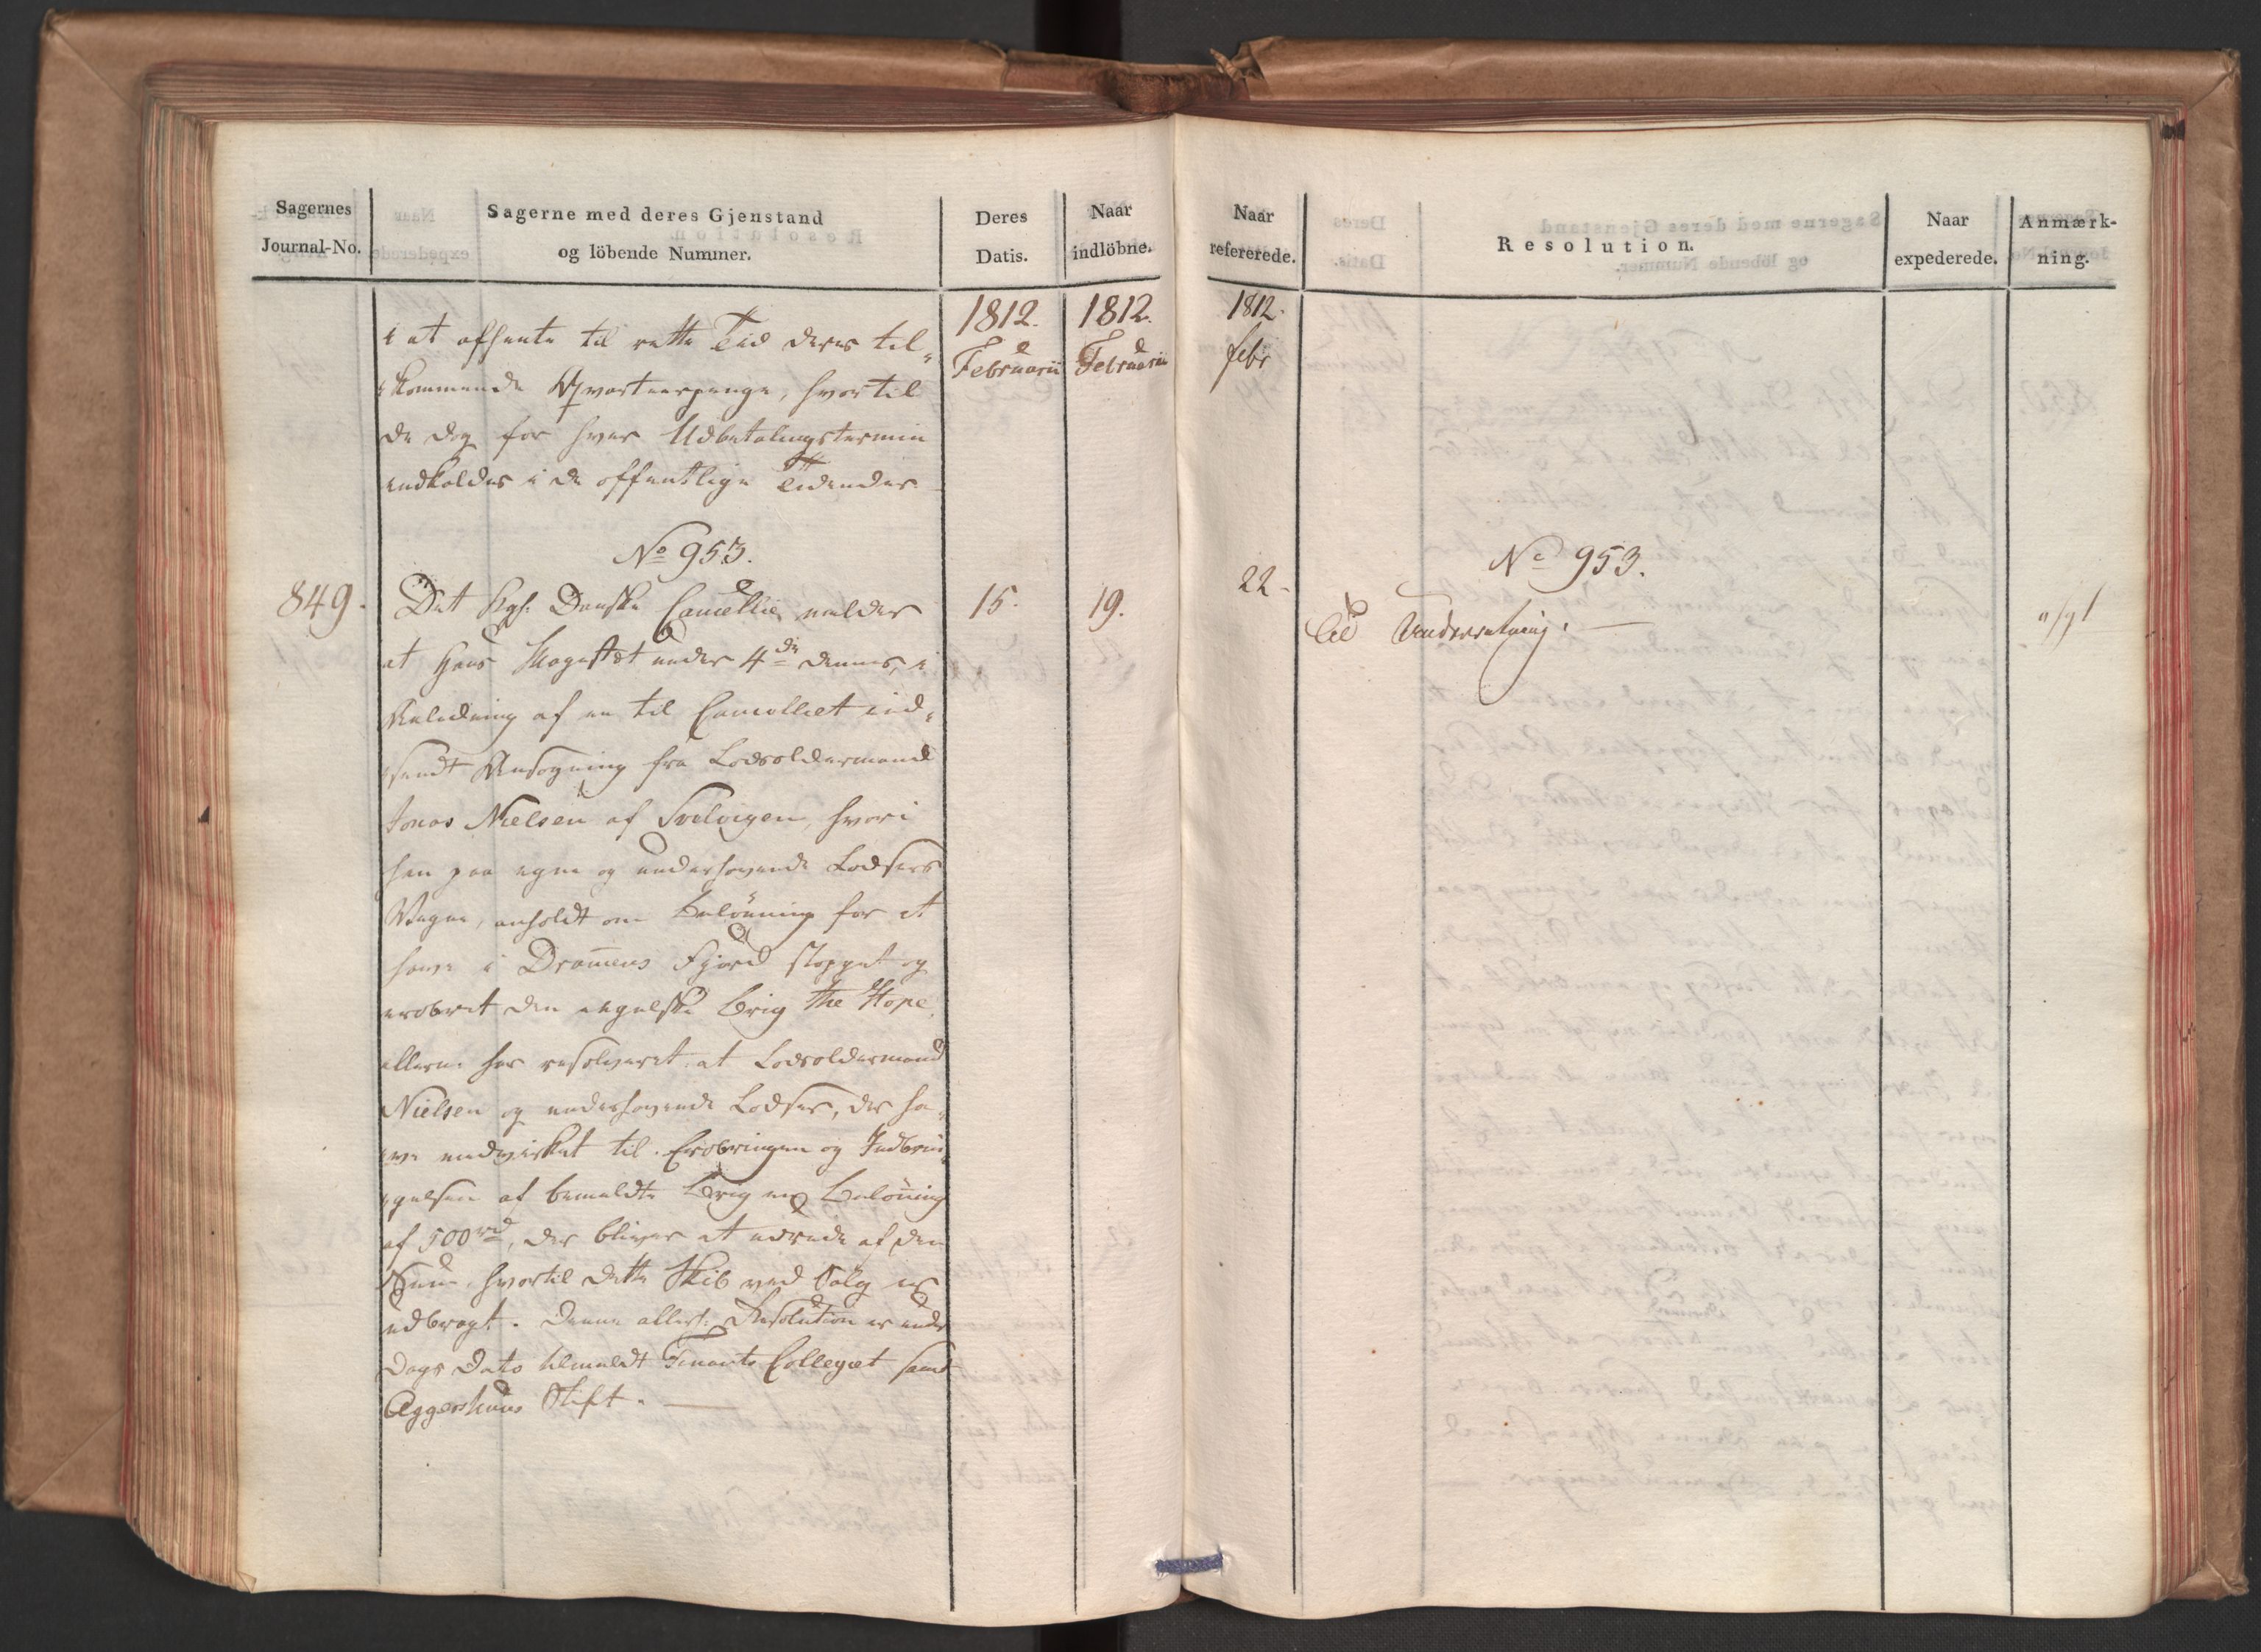 Sagernes
Journal-No.
Sagerne med deres Gjenstand
og löbende Nummer.
Deres
Datis.
Naar
indlöbne.
1812.
Februarii
1812.
Februarii
i at afhente til rette Tid deres til-
kommende Qvarteerpenge, hvortil
de dog for hver Udbetalingstermin
indkaldes i de offentlige Tidender.
No 953.
849.
15.
19.
Det Kgl. Danske Cancellie melder
at Hans Majestæt under 4de dennes, i
Anledning af en til Cancelliet ind-
sendt Ansøgning fra Lodsoldermand
Jonas Nielsen af Svelvigen, hvori
han paa egne og underhavende Lodsers
Vegne, anholdt om Belönning for at
have i Dramens Fjord stoppet og
erobret den engelske Brig The Hope,
allern. har resolveret: at Lodsoldermand
Nielsen og underhavende Lodser, der ha-
ve medvirket til Erobringen og Indbrin-
gelsen af bemeldte Brig en Belöning
af 500 rd, der bliver at udrede af den
Sum, hvortil dette Skib ved Salg er
udbragt. Denne allerh. Resolution er under
Dags Dato tilmeldt Finants Collegiet samt
Aggershuus Stift.
Naar
refererede.
Resolution.
Naar
expederede.
Anmærk-
ning.
1812.
febr
No 953.
22.
Til Underretning.